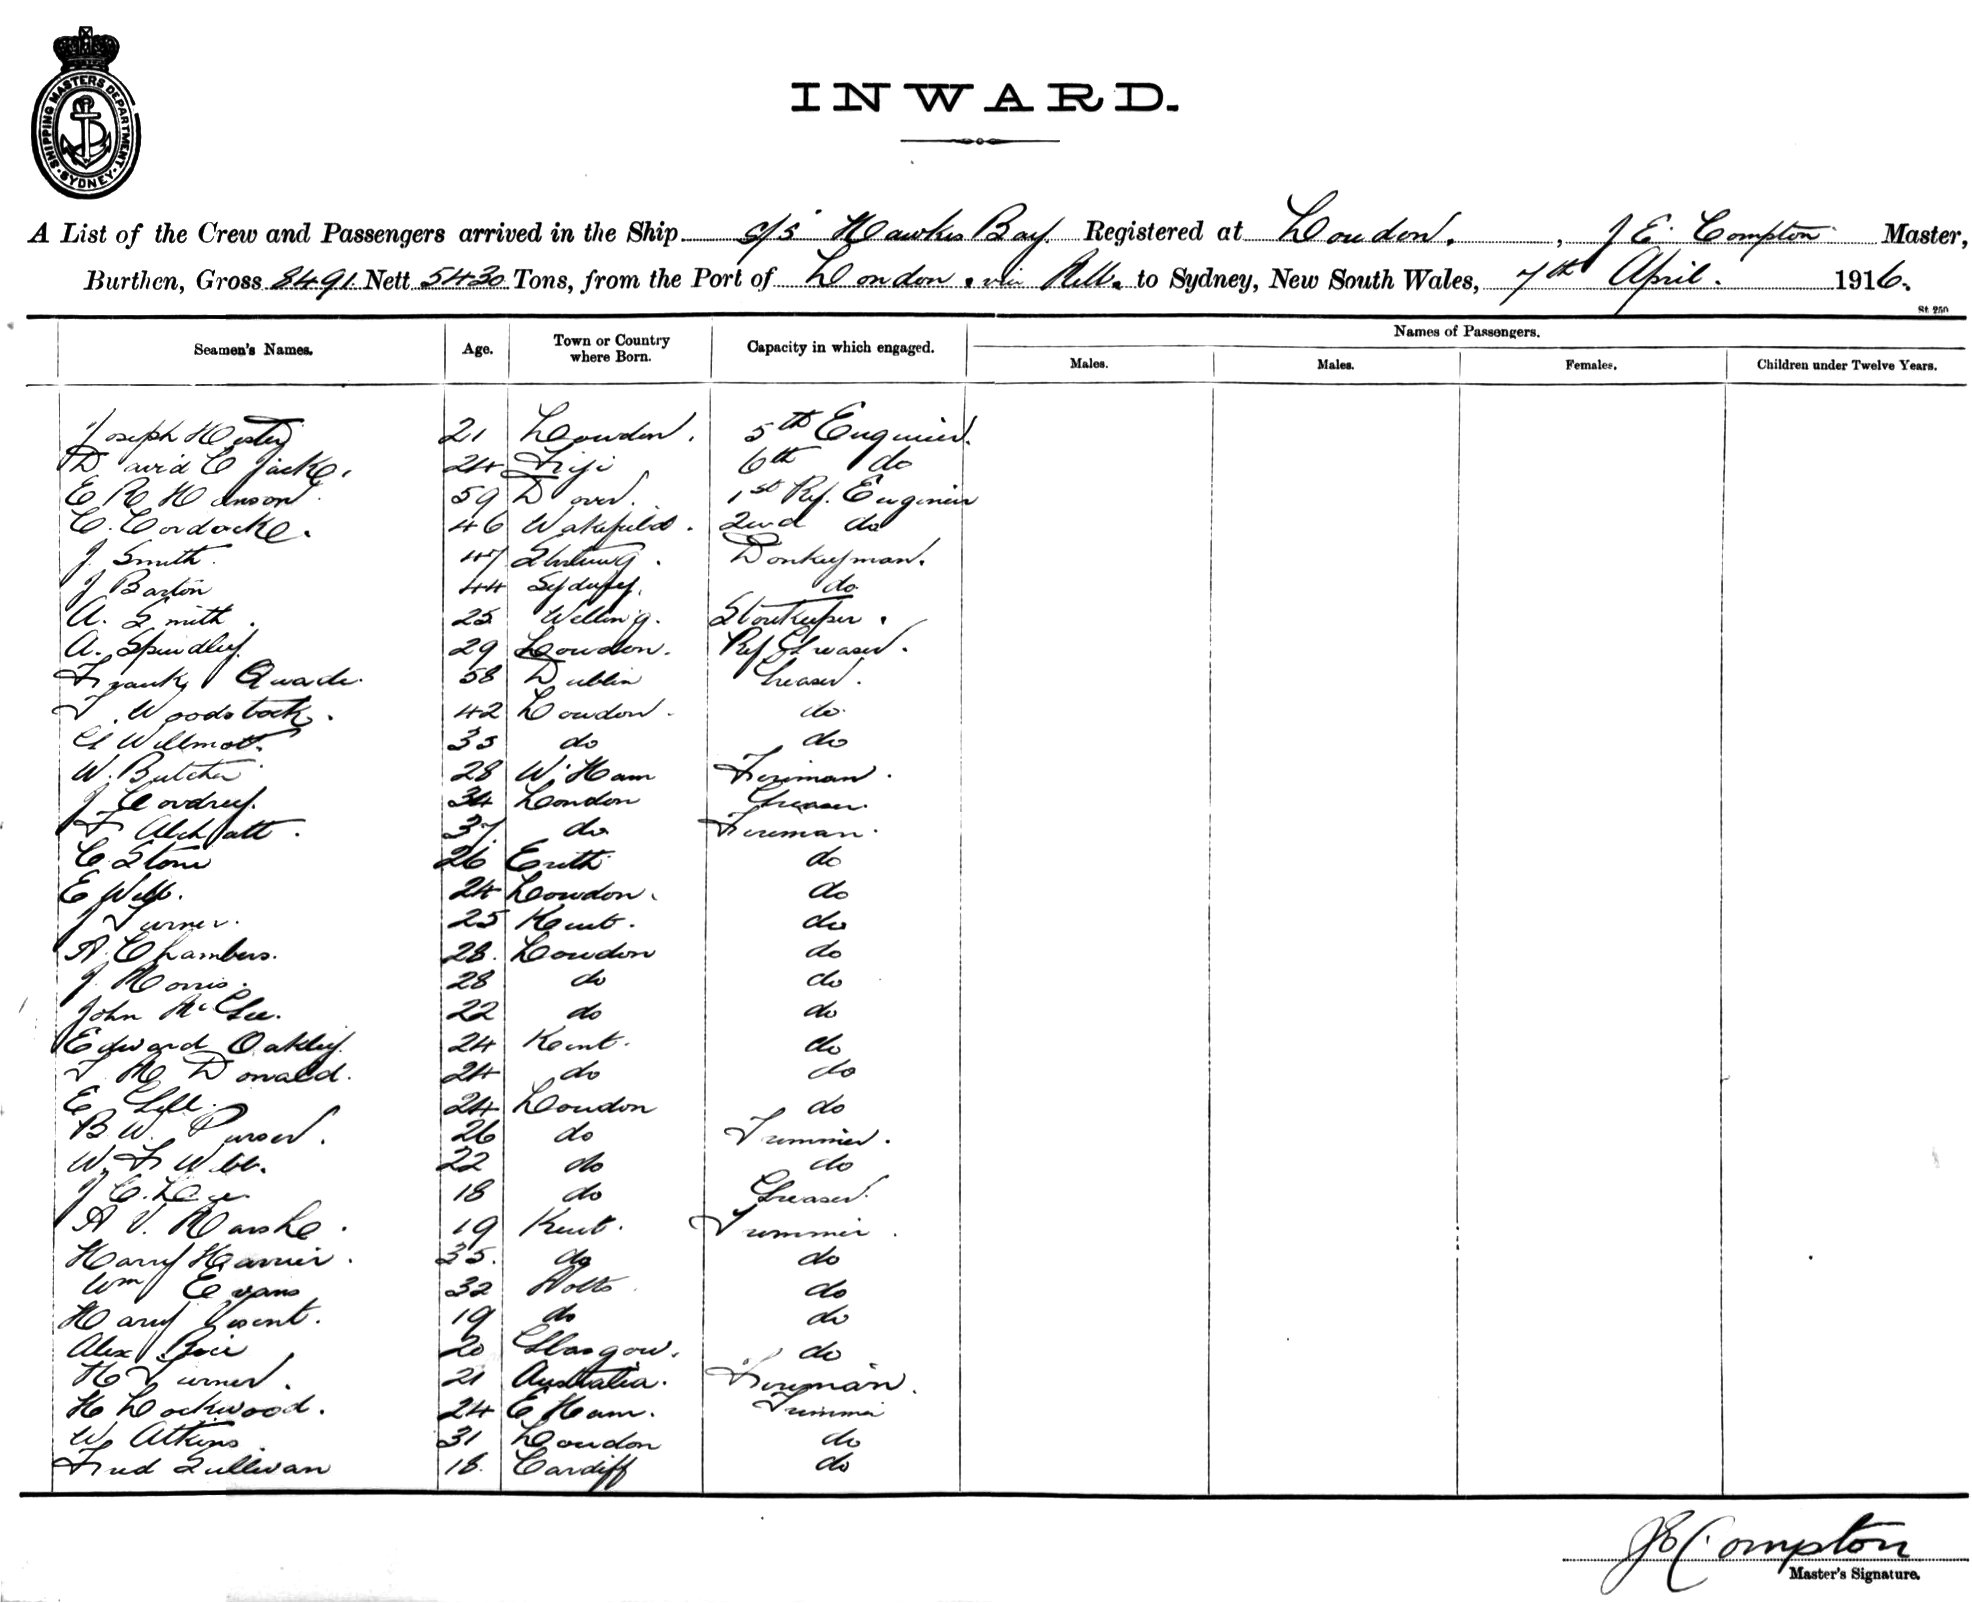 SHIPPING MASTERS DEPARTMENT SYDNEY
INWARD.
A List of the Crew and Passengers arrived in the Ship s/s Hawkes Bay Registered at London, J E Compton Master,
Burthen, Gross 8491 Nett 5430 Tons, from the Port of London via Melb. to Sydney, New South Wales, 7th April. 1916.
St. 250
Seamen's Names. Age. Town or Country where Born. Capacity in which engaged. Names of Passengers.
Males. Males. Females. Children under Twelve Years.
Joseph 21 London. 5th Engineer.
David C Jacke. 24 Fiji 6th do
E R Hanson 59 Dover. 1st Ref. Engineer
C. Cordocke. 46 Wakefield. 2nd do
J. Smith. 47 Donkeyman.
J Barton 44 Sydney. do
A. Smith. 25 Welling. Storekeeper.
A. Spindley. 29 London. Ref Greaser.
Frank Quade. 58 Dublin Greaser.
T. Woodstock. 42 London. do
Willmott. 35 do do
W. Butcher 28 W. Ham Fireman.
J Cordrey. 34 London Greaser.
F 37 do Fireman.
C. Stone 26 Erith do
E Webb. 24 London. do
J Turner. 25 Kent. do
A. Chambers. 28. London do
J. Morris. 28 do do
John McGee. 22 do do
Edward Oakley. 24 Kent. do
T. McDonald. 24 do do
E Gill. 24 London do
B W. Purser. 26 do Trimmer.
W. F Webb. 22 do do
J C. Lee. 18 do Greaser.
A V. Marshe. 19 Kent. Trimmer.
Harry Harrier. 35. do do
Wm Evans 32 Notts. do
Harry Vicent. 19 do do
Alex 20 Glasgow. do
H Turner. 21 Australia. Fireman.
H Lockwood. 24 E Ham. Trimmer
W. Atkins. 31 London do
Fred Sullivan 18. Cardiff do
J E Compton
Master's Signature.